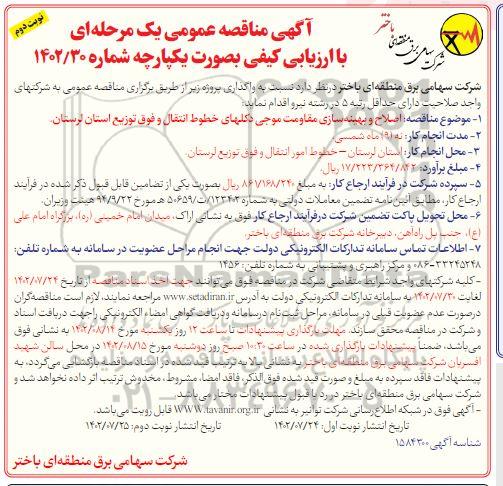 نوبت دوم
باختر
شرکت سهامی برق منطقه‌ای
آگهی مناقصه عمومی یک مرحله‌ای
با ارزیابی کیفی بصورت یکپارچه شماره ۱۴۰۲/۳۰
شرکت سهامی برق منطقه‌ای باختر درنظر دارد نسبت به واگذاری پروژه زیر از طریق برگزاری مناقصه عمومی به شرکتهای
واجد صلاحیت دارای حداقل رتبه ۵ در رشته نیرو اقدام نماید:
۱- موضوع مناقصه: اصلاح و بهینه‌سازی مقاومت موجی دکلهای خطوط انتقال و فوق توزیع استان لرستان.
۲- مدت انجام کار: نه (۹) ماه شمسی
۳- محل انجام کار: استان لرستان – خطوط امور انتقال و فوق توزیع لرستان.
۴- مبلغ برآورد: ۱۷/۲۲۳/۳۶۴/۸۴۳ ریال
۵- سپرده شرکت در فرآیند ارجاع کار: به مبلغ ۸۶۱/۱۶۸/۲۴۰ ریال بصورت یکی از تضامین قابل قبول ذکر شده در فرآیند
ارجاع کار، مطابق آئین نامه تضمین معاملات دولتی به شماره ۱۲۳۴۰۲/ت۵۰۶۵۹ ه مورخ ۹۴/۹/۲۲ هیئت وزیران.
۶- محل تحویل پاکت تضمین شرکت درفرآیند ارجاع کار فوق به نشانی اراک، میدان امام خمینی (ره)، بزرگراه امام علی
(ع)، جنب پل راه‌آهن، دبیرخانه شرکت برق منطقه‌ای باختر.
۷- اطلاعات تماس سامانه تدارکات الکترونیکی دولت جهت انجام مراحل عضویت در سامانه به شماره تلفن:
۳۳۲۴۵۲۴۸-۰۸۶ و مرکز راهبری و پشتیبانی به شماره تلفن: ۱۴۵۶
- کلیه شرکتهای واجد شرایط متقاضی شرکت در مناقصه فوق می‌توانند جهت اخذ اسناد مناقصه از تاریخ ۱۴۰۲/۰۷/۲۴
لغایت ۱۴۰۲/۰۷/۳۰ به سامانه تدارکات الکترونیکی دولت به آدرس www.setadiran.ir مراجعه نمایند، لازم است مناقصه‌گران
درصورت عدم عضویت قبلی در سامانه، مراحل ثبت نام درسامانه و دریافت گواهی امضاء الکترونیکی را جهت دریافت اسناد
و شرکت در مناقصه محقق سازند. مهلت بارگذاری پیشنهادات تا ساعت ۱۲ روز یکشنبه مورخ ۱۴۰۲/۰۸/۱۴ به نشانی فوق
می‌باشد، ضمناً پیشنهادات بارگذاری شده در ساعت ۱۰:۳۰ صبح روز دوشنبه مورخ ۱۴۰۲/۰۸/۱۵ در محل سالن شهید
افسریان شرکت سهامی برق منطقه‌ای باختر به نشانی بالا به ترتیب قید شده در اسناد مناقصه بازگشائی می‌گردد، به
پیشنهادات فاقد سپرده به مبلغ و صورت قید شده فوق‌الذکر، فاقد امضا، مشروط، مخدوش ترتیب اثر داده نخواهد شد و
شرکت سهامی برق منطقه‌ای باختر در رد یا قبول پیشنهادات مختار می‌باشد.
- آگهی فوق در شبکه اطلاع‌رسانی شرکت توانیر به نشانی WWW.tavanir.org.ir قابل رویت می‌باشد.
تاریخ انتشار نوبت اول: ۱۴۰۲/۰۷/۲۴ تاریخ انتشار نوبت دوم: ۱۴۰۲/۰۷/۲۵
شناسه آگهی ۱۵۸۴۳۰۰
شرکت سهامی برق منطقه‌ای باختر